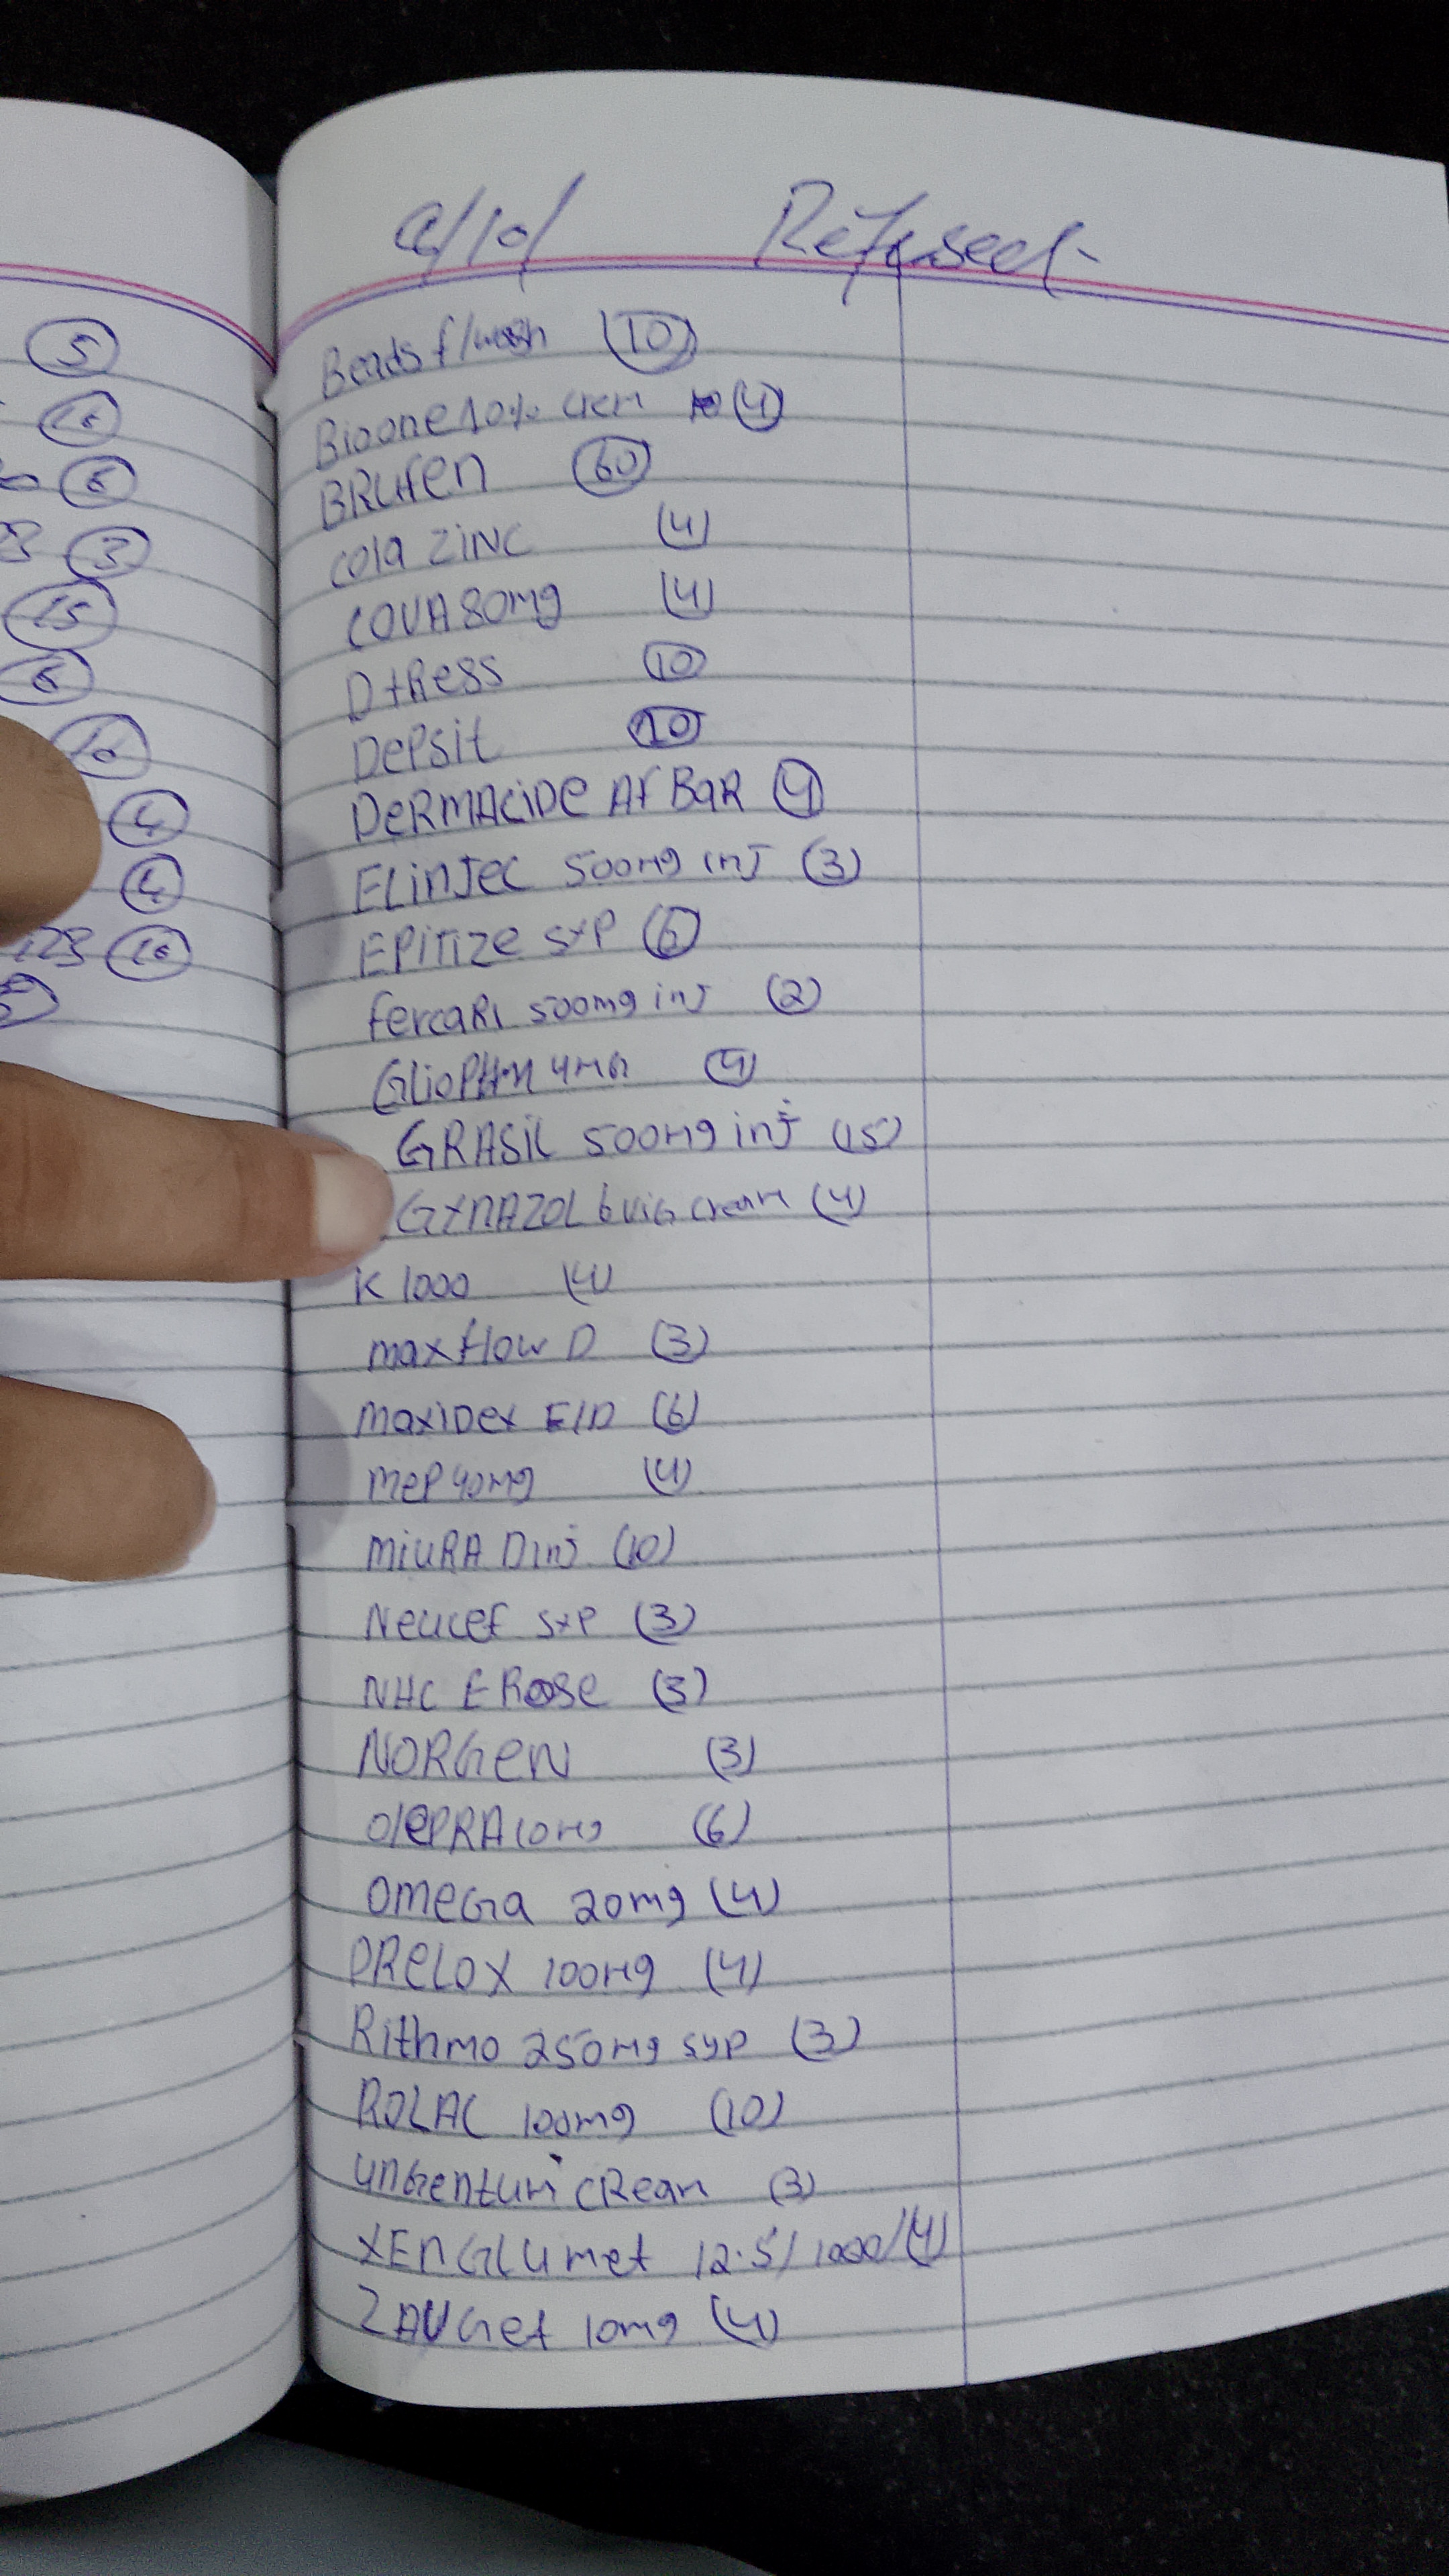 Refused
Beads f/wash (10)
Bioone 10% (4)
BRUfen (60)
Cola ZINC (4)
COVA 80mg (4)
D tRess (10)
Depsit (10)
DeRMACiDe Af BaR (4)
ELinJec 500mg inJ (3)
EPitize SYP (6)
fercaRi 500mg inJ (2)
4mg (4)
GRASil 500mg inj (15)
GYNAZOL cream (4)
K 1000 (4)
maxflow D (3)
MaxiDex E/D (6)
MeP 40mg (4)
MiuRA D inj (10)
Neucef SYP (3)
NHC (3)
NORGeN (3)
OlePRA 10mg (6)
OmeGa 20mg (4)
PReLOX 100mg (4)
Rithmo 250mg syp (3)
ROLAC 100mg (10)
unGentum CReam (3)
XEnGlumet 12.5/1000 (4)
ZAVGet 10mg (4)
5
3
15
4
4